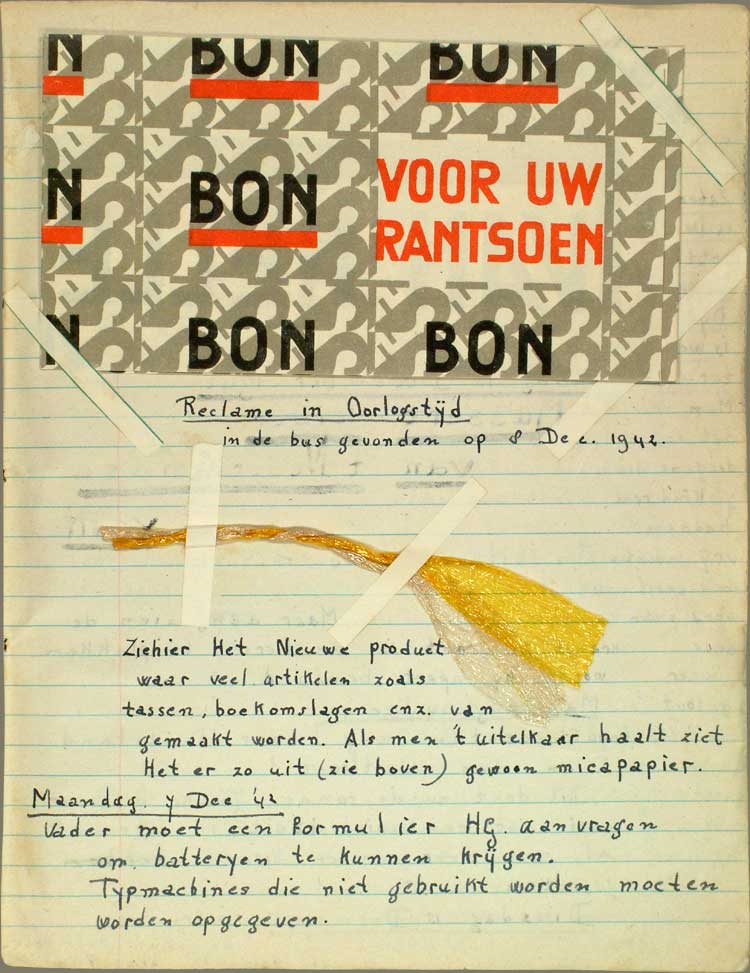 N BON BON
N BON VOOR UW
RANTSOEN
N BON BON
Reclame in Oorlogstijd
in de bus gevonden op 8 Dec. 1942.
Ziehier Het Nieuwe product
waar veel artikelen zoals
tassen, boekomslagen enz. van
gemaakt worden. Als men 't uitelkaar haalt ziet
Het er zo uit (zie boven) gewoon micapapier.
Maandag 7 Dec '42
Vader moet een formulier Hg. aanvragen
om batteryen te kunnen krijgen.
Typmachines die niet gebruikt worden moeten
worden opgegeven.